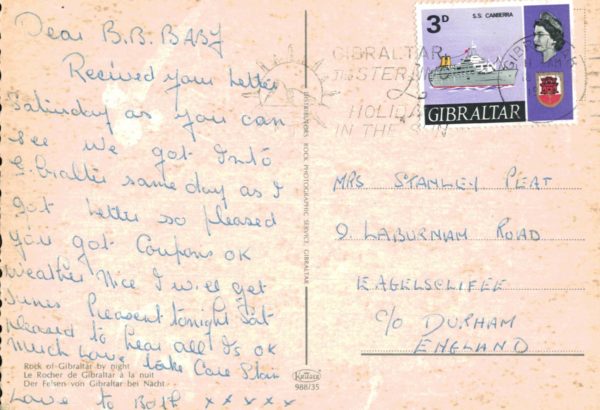 Dear B.B. BABY
Received your letter
Saturday as you can
see we got Into
Gibralter same day as I
got letter so pleased
you got Coupons ok
weather Nice I will get
Junes Present tonight Sat
pleased to hear all Is ok
much Love take Care Stan
Love to Both x x x x x
Rock of Gibraltar by night
Le Rocher de Gibraltar à la nuit
Der Felsen von Gibraltar bei Nacht
DISTRIBUTORS: ROCK PHOTOGRAPHIC SERVICE, GIBRALTAR
988/35
GIBRALTAR
HOLIDAY
IN THE SUN
GIBRALTAR
3D
S.S. CANBERRA
GIBRALTAR
MRS STANLEY PEAT
9 LABURNAM ROAD
EAGELSCLIFEE
C/o DURHAM
ENGLAND